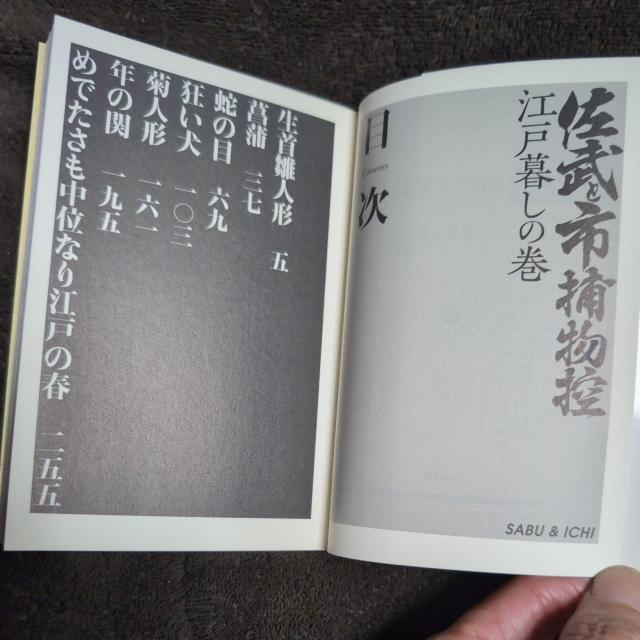 佐武と市捕物控
江戸暮しの巻
目次
Contents
SABU & ICHI
生首雛人形 五
菖蒲 三七
蛇の目 六九
狂い犬 一〇三
菊人形 一六一
年の関 一九五
めでたさも中位なり江戸の春 二五五